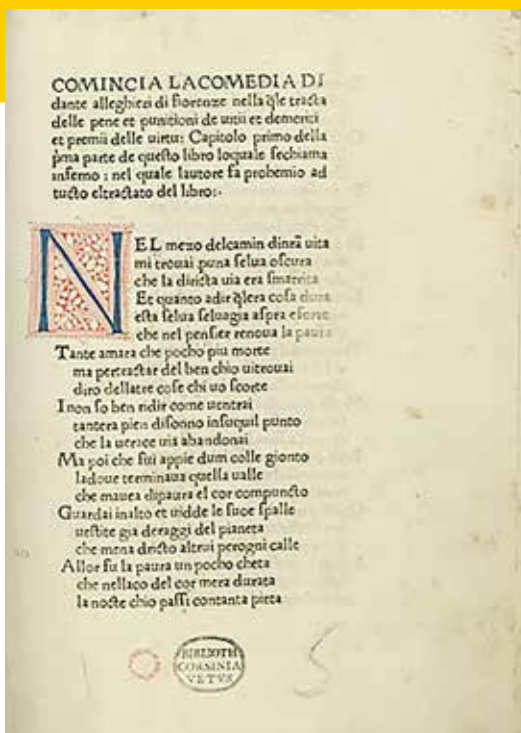 COMINCIA LACOMEDIA DI
dante alleghieri di fiorenze nella q̃le tracta
delle pene et punitioni de uitii et demeriti
et premii delle uirtu: Capitolo primo della
p̃ma parte de questo libro loquale sechiama
inferno : nel quale lautore fa prohemio ad
tucto eltractato del libro:·
NEL mezo delcamin dinr̃a uita
mi trouai puna selua oscura
che la diricta uia era smarrita
Et quanto adir q̃lera cosa dura
esta selua seluagia aspra eforte
che nel pensier renoua la paura
Tante amara che pocho piu morte
ma pertractar del ben chio uitrouai
diro dellatre cose chi uo scorte
I non so ben ridir come uentrai
tantera pien disonno insuquil punto
che la uerace uia abandonai
Ma poi che fui appie dum colle gionto
ladoue terminaua quella ualle
che mauea dipaura el cor compuncto
Guardai inalto et uidde le suoe spalle
uestite gia deraggi del pianeta
che mena dricto altrui perogni calle
Allor fu la paura un pocho cheta
che nellaco del cor mera durata
la nocte chio passi contanta pieta
BIBLIOTH
CORSINIA
VETVS